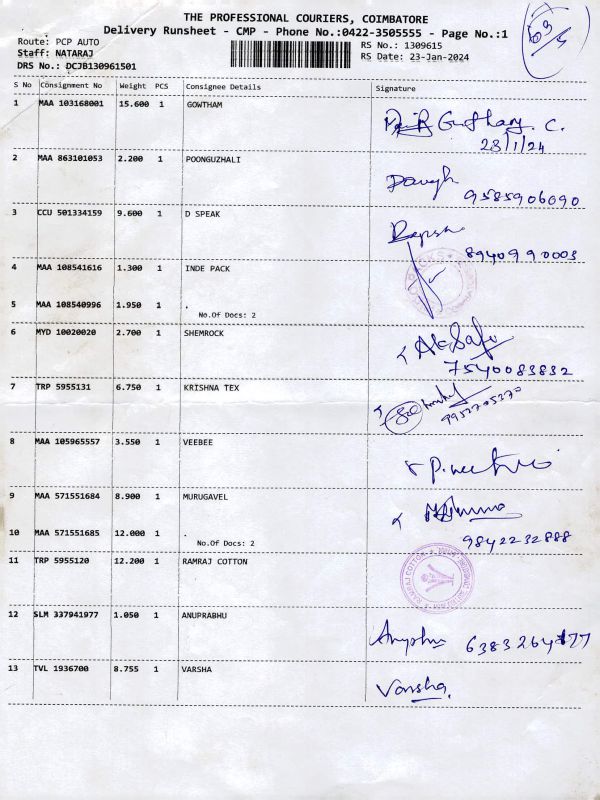 THE PROFESSIONAL COURIERS, COIMBATORE
Delivery Runsheet - CMP - Phone No.:0422-3505555 - Page No.:1
Route: PCP AUTO
Staff: NATARAJ
DRS No.: DCJB130961501
RS No.: 1309615
RS Date: 23-Jan-2024
S No Consignment No Weight PCS Consignee Details Signature
1 MAA 103168001 15.600 1 GOWTHAM
C.
23/1/24
2 MAA 863101053 2.200 1 POONGUZHALI
9585906090
3 CCU 501334159 9.600 1 D SPEAK
8940990003
4 MAA 108541616 1.300 1 INDE PACK
5 MAA 108540996 1.950 1 .
No.Of Docs: 2
6 MYD 10020020 2.700 1 SHEMROCK
7540083832
7 TRP 5955131 6.750 1 KRISHNA TEX
9952705370
8 MAA 105965557 3.550 1 VEEBEE
9 MAA 571551684 8.900 1 MURUGAVEL
10 MAA 571551685 12.000 1 .
No.Of Docs: 2
9842232888
11 TRP 5955120 12.200 1 RAMRAJ COTTON
RAMRAJ COTTON
12 SLM 337941977 1.050 1 ANUPRABHU
13 TVL 1936700 8.755 1 VARSHA
Varsha.